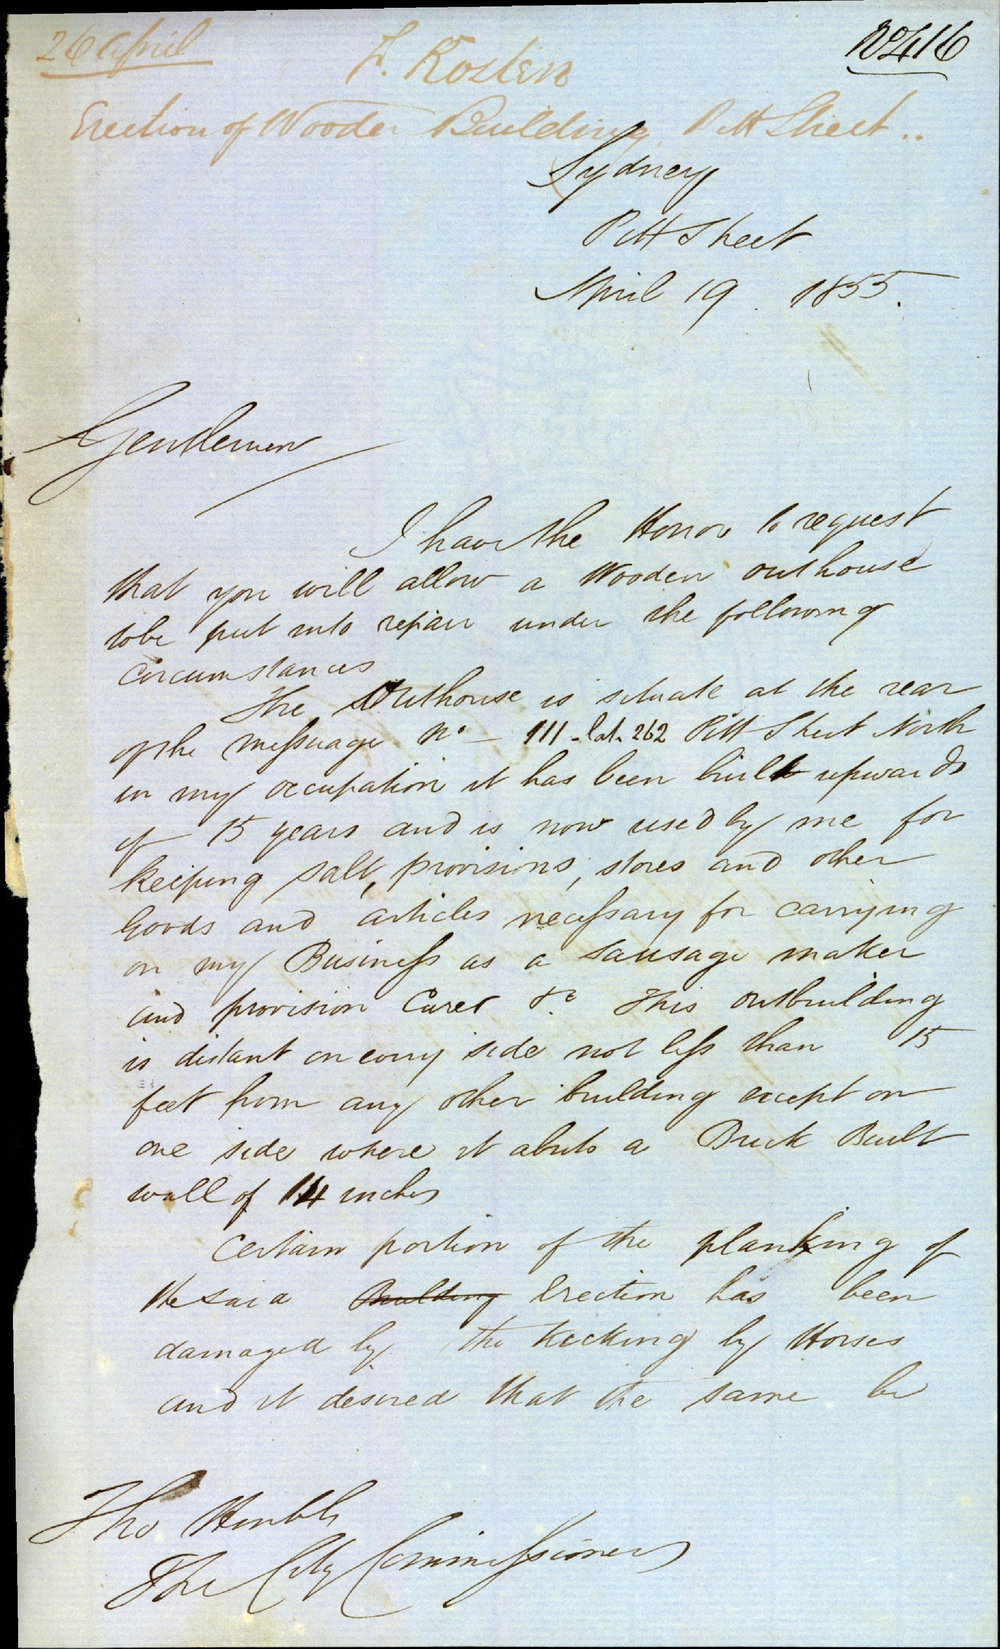 26 April
No 416
F. Rosten
Erection of Wooden Building Pitt Street..
Sydney
Pitt Street
April 19 1855.
Gentlemen
I have the Honor to request
that you will allow a Wooden outhouse
to be put into repair under the following
Circumstances
The Outhouse is situate at the rear
of the messuage No - 111 - lat. 262 Pitt Street North
in my occupation it has been built upwards
of 15 years and is now used by me for
keeping salt, provisions, stores and other
Goods and articles necessary for carrying
on my Business as a sausage maker
and provision Curer &c This outbuilding
is distant on every side not less than 15
feet from any other building except on
one side where it abuts a Brick Built
wall of 14 inches
Certain portion of the planking of
the said Building Erection has been
damaged by the kicking by Horses
and it desired that the same be
The Honble
The City Commissioners